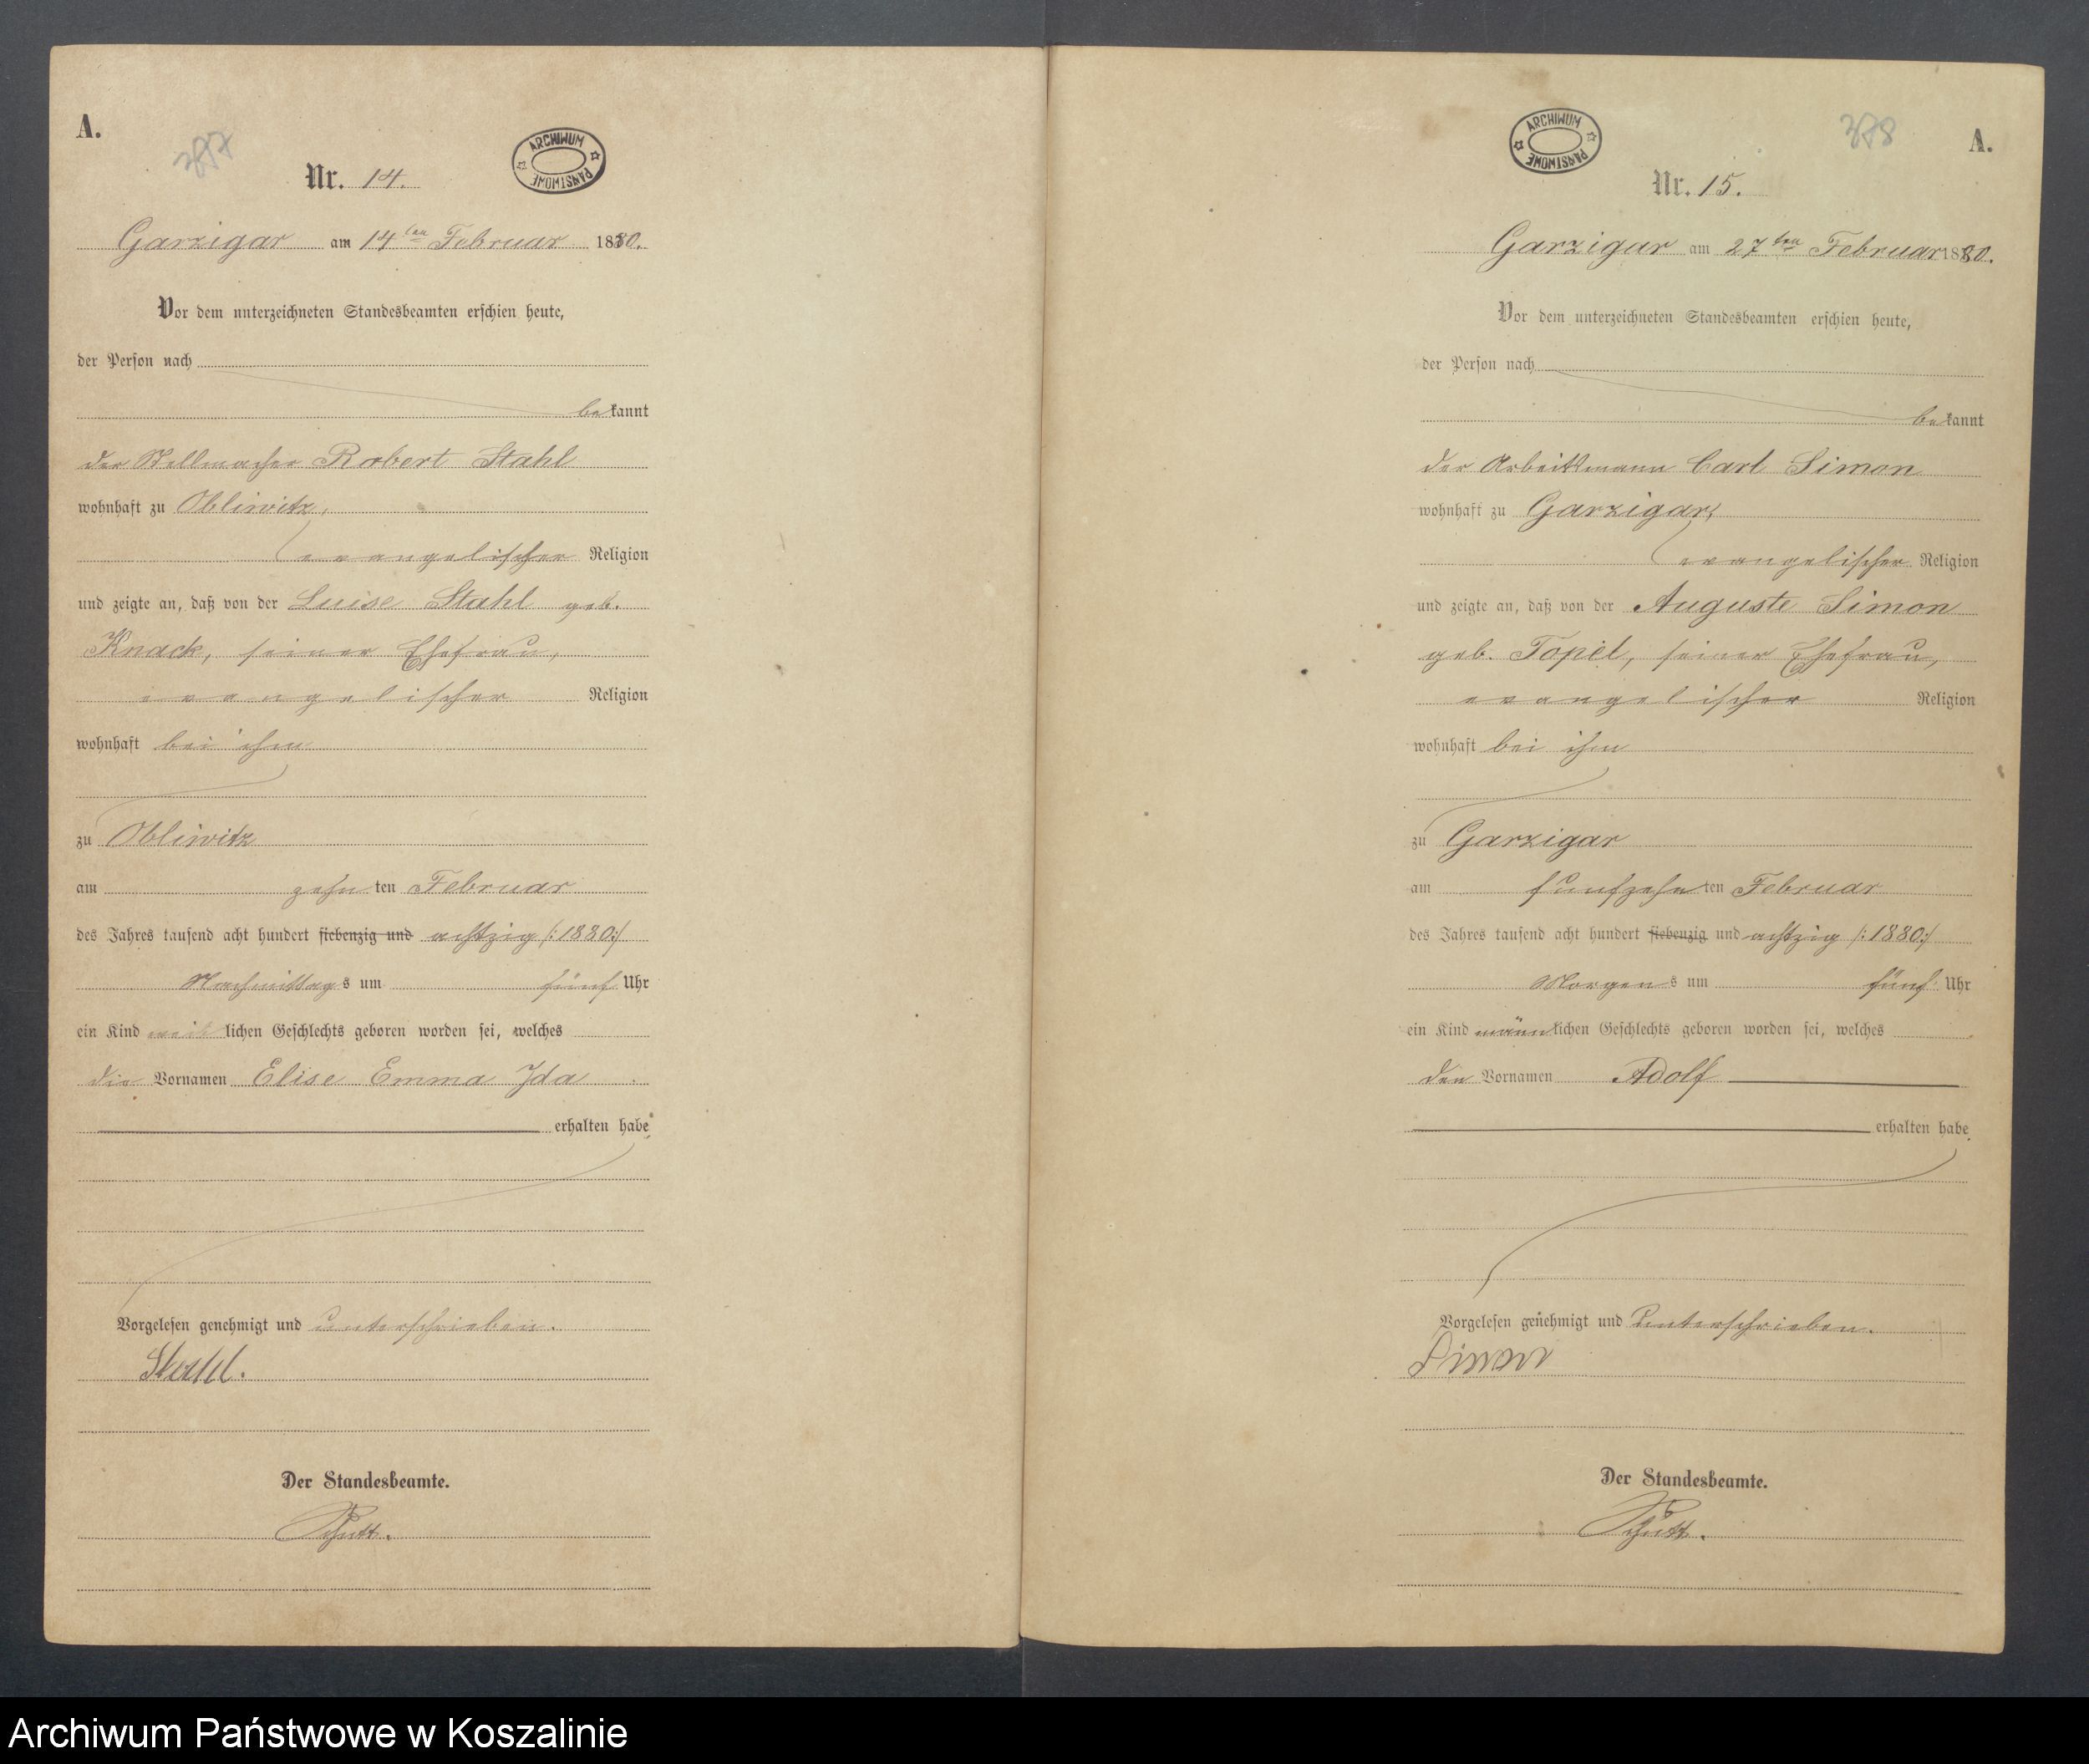 A.
387
ARCHIWUM PAŃSTWOWE
Nr. 14.
Garzigar am 14ten Februar 1880.
Vor dem unterzeichneten Standesbeamten erschien heute,
der Person nach
bekannt
der Stellmacher Robert Stahl
wohnhaft zu Obliwitz,
evangelischer Religion
und zeigte an, daß von der Luise Stahl geb.
Knack, seiner Ehefrau,
evangelischer Religion
wohnhaft bei ihm
zu Obliwitz
am zehnten Februar
des Jahres tausend acht hundert siebenzig und achtzig /:1880:/
Nachmittags um fünf Uhr
ein Kind weiblichen Geschlechts geboren worden sei, welches
die Vornamen Elise Emma Ida
erhalten habe
Vorgelesen genehmigt und unterschrieben.
Stahl.
Der Standesbeamte.
Schutt.
388
A.
ARCHIWUM PAŃSTWOWE
Nr. 15.
Garzigar am 27ten Februar 1880.
Vor dem unterzeichneten Standesbeamten erschien heute,
der Person nach
bekannt
der Arbeitsmann Carl Simon
wohnhaft zu Garzigar,
evangelischer Religion
und zeigte an, daß von der Auguste Simon
geb. Topel, seiner Ehefrau,
evangelischer Religion
wohnhaft bei ihm
zu Garzigar
am funfzehnten Februar
des Jahres tausend acht hundert siebenzig und achtzig /:1880:/
Morgens um fünf Uhr
ein Kind männlichen Geschlechts geboren worden sei, welches
den Vornamen Adolf
erhalten habe
Vorgelesen genehmigt und unterschrieben.
Simon
Der Standesbeamte.
Schutt.
Archiwum Państwowe w Koszalinie